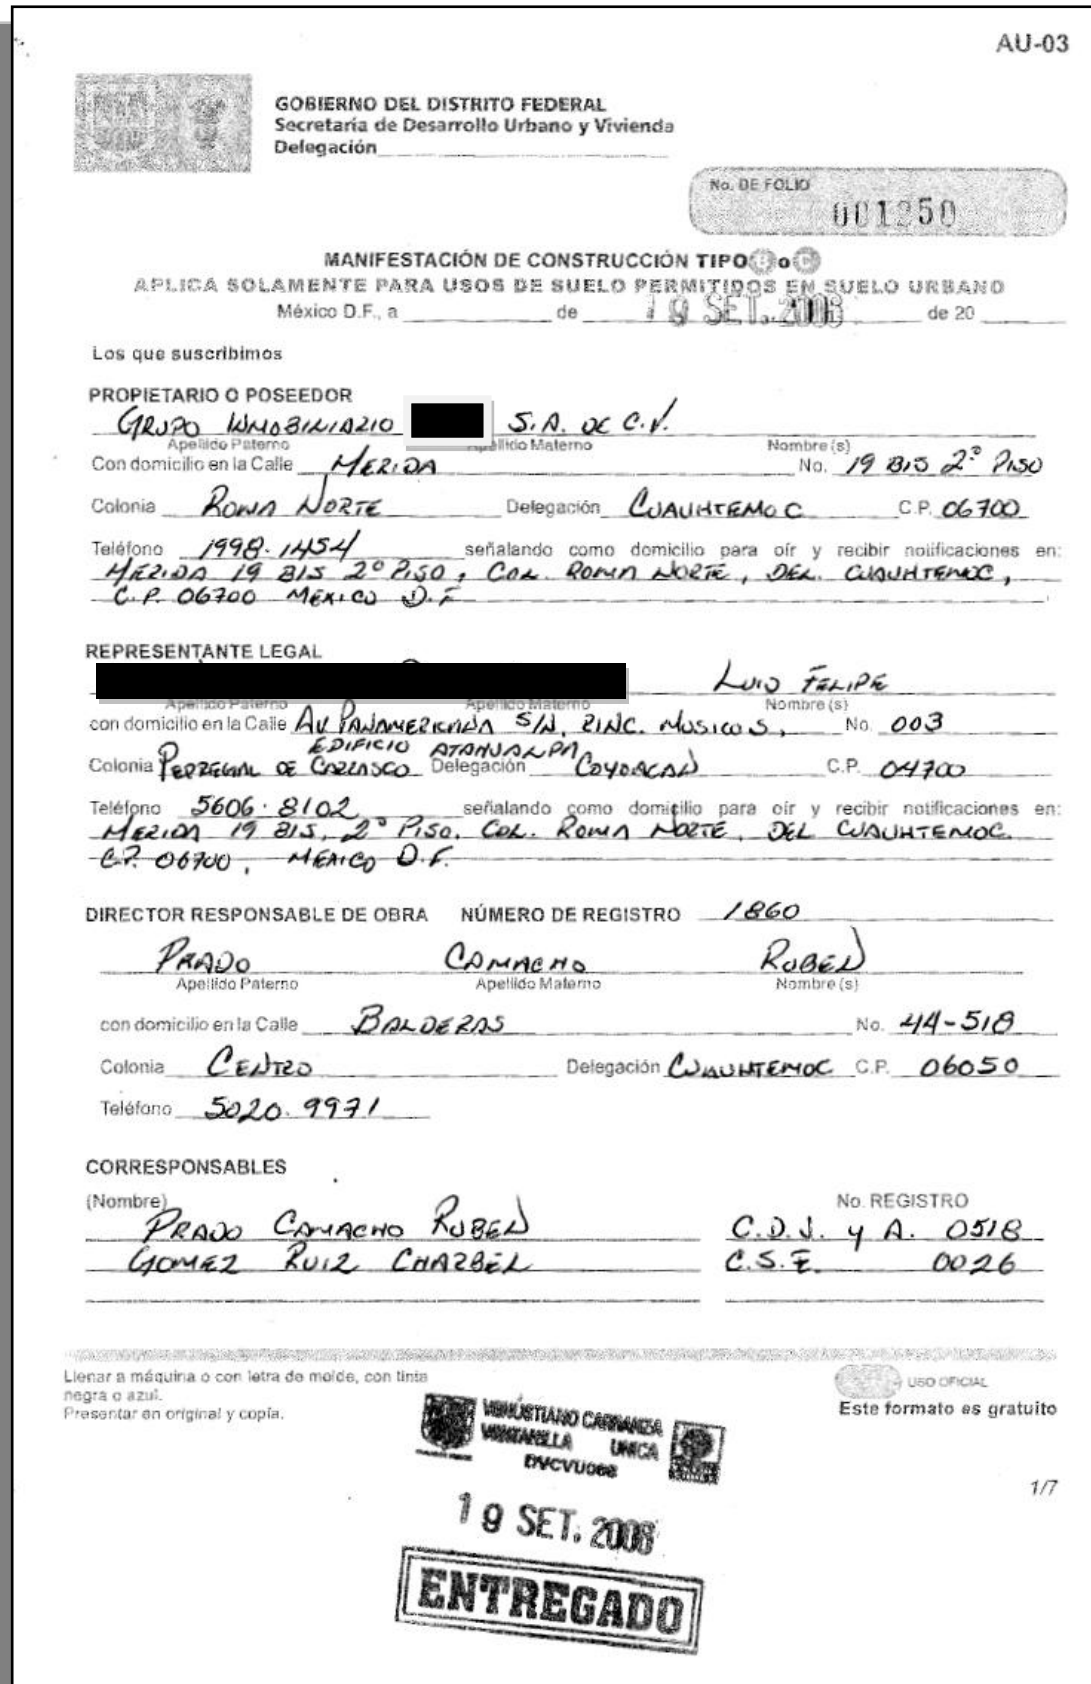 AU-03
GOBIERNO DEL DISTRITO FEDERAL
Secretaría de Desarrollo Urbano y Vivienda
Delegación
No. DE FOLIO
001250
MANIFESTACIÓN DE CONSTRUCCIÓN TIPO B o C
APLICA SOLAMENTE PARA USOS DE SUELO PERMITIDOS EN SUELO URBANO
México D.F., a de 19 SET. 2008 de 20
Los que suscribimos
PROPIETARIO O POSEEDOR
GRUPO INMOBILIARIO S.A. DE C.V.
Apellido Paterno Apellido Materno Nombre (s)
Con domicilio en la Calle MERIDA No. 19 BIS 2º PISO
Colonia ROMA NORTE Delegación CUAUHTEMOC C.P. 06700
Teléfono 1998.1454 señalando como domicilio para oír y recibir notificaciones en:
MERIDA 19 BIS 2º PISO, COL. ROMA NORTE, DEL. CUAUHTEMOC,
C.P. 06700 MEXICO D.F
REPRESENTANTE LEGAL
LUIS FELIPE
Apellido Paterno Apellido Materno Nombre (s)
con domicilio en la Calle AV PANAMERICANA S/N, RINC. MUSICOS, No. 003
EDIFICIO ATAHUALPA
Colonia PEDREGAL DE CARRASCO Delegación COYOACAN C.P. 04700
Teléfono 5606.8102 señalando como domicilio para oír y recibir notificaciones en:
MERIDA 19 BIS, 2º PISO, COL. ROMA NORTE, DEL CUAUHTEMOC
C.P. 06700, MEXICO D.F.
DIRECTOR RESPONSABLE DE OBRA NÚMERO DE REGISTRO 1860
PRADO CAMACHO RUBEN
Apellido Paterno Apellido Materno Nombre (s)
con domicilio en la Calle BALDERAS No. 44-518
Colonia CENTRO Delegación CUAUHTEMOC C.P. 06050
Teléfono 5020.9971
CORRESPONSABLES
(Nombre) No. REGISTRO
PRADO CAMACHO RUBEN C.D.U. y A. 0518
GOMEZ RUIZ CHARBEL C.S.E. 0026
Llenar a máquina o con letra de molde, con tinta
negra o azul.
Presentar en original y copia.
USO OFICIAL
Este formato es gratuito
VENUSTIANO CARRANZA
VENTANILLA UNICA
DVCVU068
1/7
19 SET. 2008
ENTREGADO